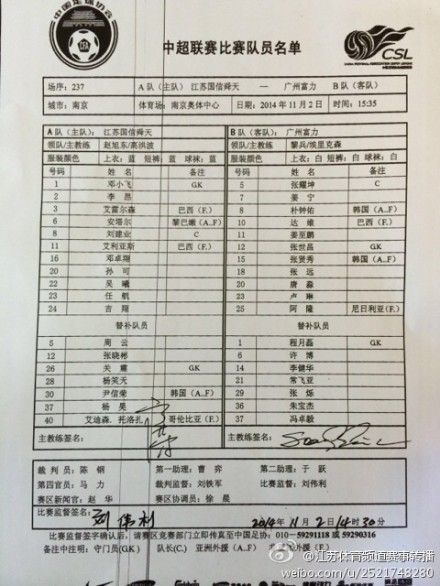 中国足球协会
中超联赛比赛队员名单
CSL
场序：237 A 队（主队） 江苏国信舜天 — 广州富力 B 队（客队）
城市：南京 体育场：南京奥体中心 日期：2014 年 11 月 2 日 时间：15:35
A 队（主队）： 江苏国信舜天 B 队（客队）： 广州富力
领队/主教练 赵旭东/高洪波 领队/主教练 黎兵/埃里克森
服装颜色 上衣：蓝 短裤：蓝 球袜：蓝 服装颜色 上衣：白 短裤：白 球袜：白
号码 姓名 备注 号码 姓名 备注
1 邓小飞 GK 5 张耀坤 C
2 李昂 7 姜宁
3 艾雷尔森 巴西（F.） 8 朴钟佑 韩国（A..F）
6 安塔尔 黎巴嫩（A..F） 10 达维 巴西（F.）
8 刘建业 C 11 姜至鹏
11 艾利亚斯 巴西（F.） 12 张世昌 GK
16 邓卓翔 15 张贤秀 韩国（A..F）
20 孙可 18 张远
22 吴曦 20 唐淼
23 任航 23 卢琳
24 吉翔 25 阿隆 尼日利亚（F.）
替补队员 替补队员
5 周云 1 程月磊 GK
12 张晓彬 6 许博
26 关震 GK 14 李健华
28 杨笑天 21 常飞亚
30 尹信荣 韩国（A..F） 29 张烁
37 杨昊 36 朱宝杰
40 艾迪森．托洛扎 哥伦比亚（F.） 37 冯卓毅
主教练签名： 主教练签名：
裁判员：陈钢 第一助理：曹弈 第二助理：于跃
第四官员：马力 裁判监督：刘铁军 比赛监督：刘伟利
赛区新闻官：赵华 赛区协调员：徐晨
比赛监督签名：刘伟利 2014 年 11 月 2 日 14 时 30 分
比赛监督签字确认后，请赛区竞赛部门立即传真至中国足协：010—59291118 或 59290316
备注中注明：守门员(GK) 队长(C.) 亚洲外援（A..F）
@江苏体育频道赛事转播
weibo.com/u/2521748280